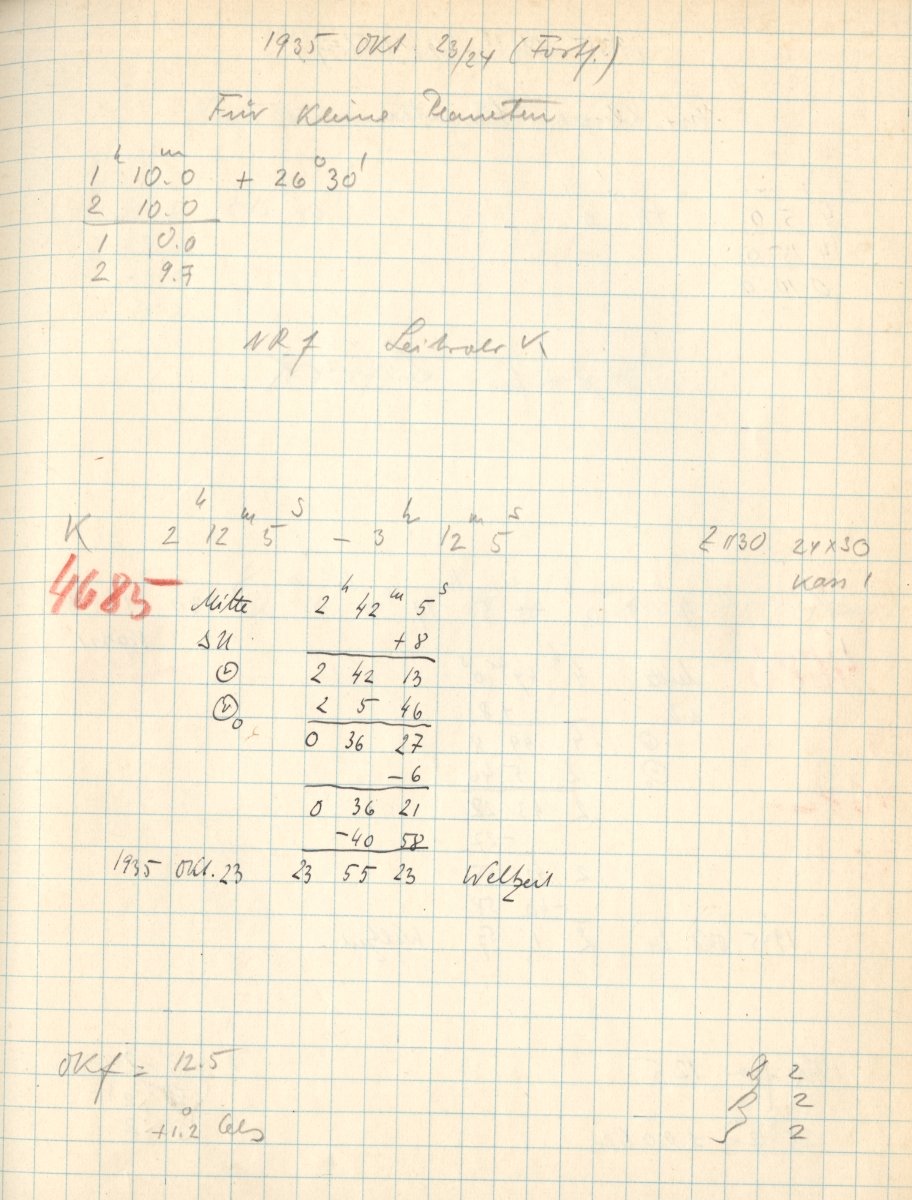 1935 Okt. 23/24 (Forts.)
Für Kleine Planeten
1ʰ 10.ᵐ0 + 26°30'
2 10.0
1 0.0
2 9.7
K 2ʰ 12ᵐ 5ˢ – 3ʰ 12ᵐ 5ˢ 24x30
Kass 1
4685
Mitte 2ʰ 42ᵐ 5ˢ
ΔU +8
2 42 13
2 5 46
0 36 27
–6
0 36 21
–40 58
1935 Okt. 23 23 55 23 Weltzeit
OKf = 12.5
+1.°2 Cels
2
2
2